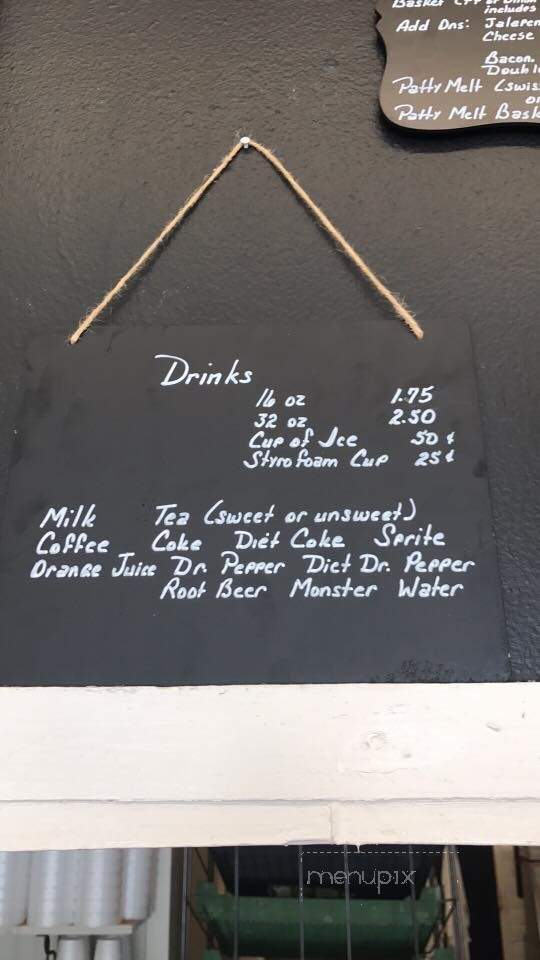 includes
Add Ons:
Cheese
Bacon.
Patty Melt
Patty Melt
Drinks
16 oz 1.75
32 oz 2.50
Cup of Ice 50 ¢
Styrofoam Cup 25 ¢
Milk Tea (sweet or unsweet)
Coffee Coke Diet Coke Sprite
Orange Juice Dr. Pepper Diet Dr. Pepper
Root Beer Monster Water
menupix